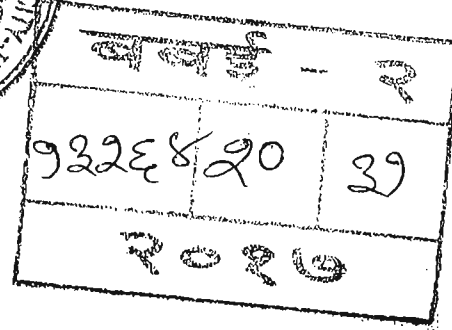 बबई - २
१३२६४ २० ३१
२०१७